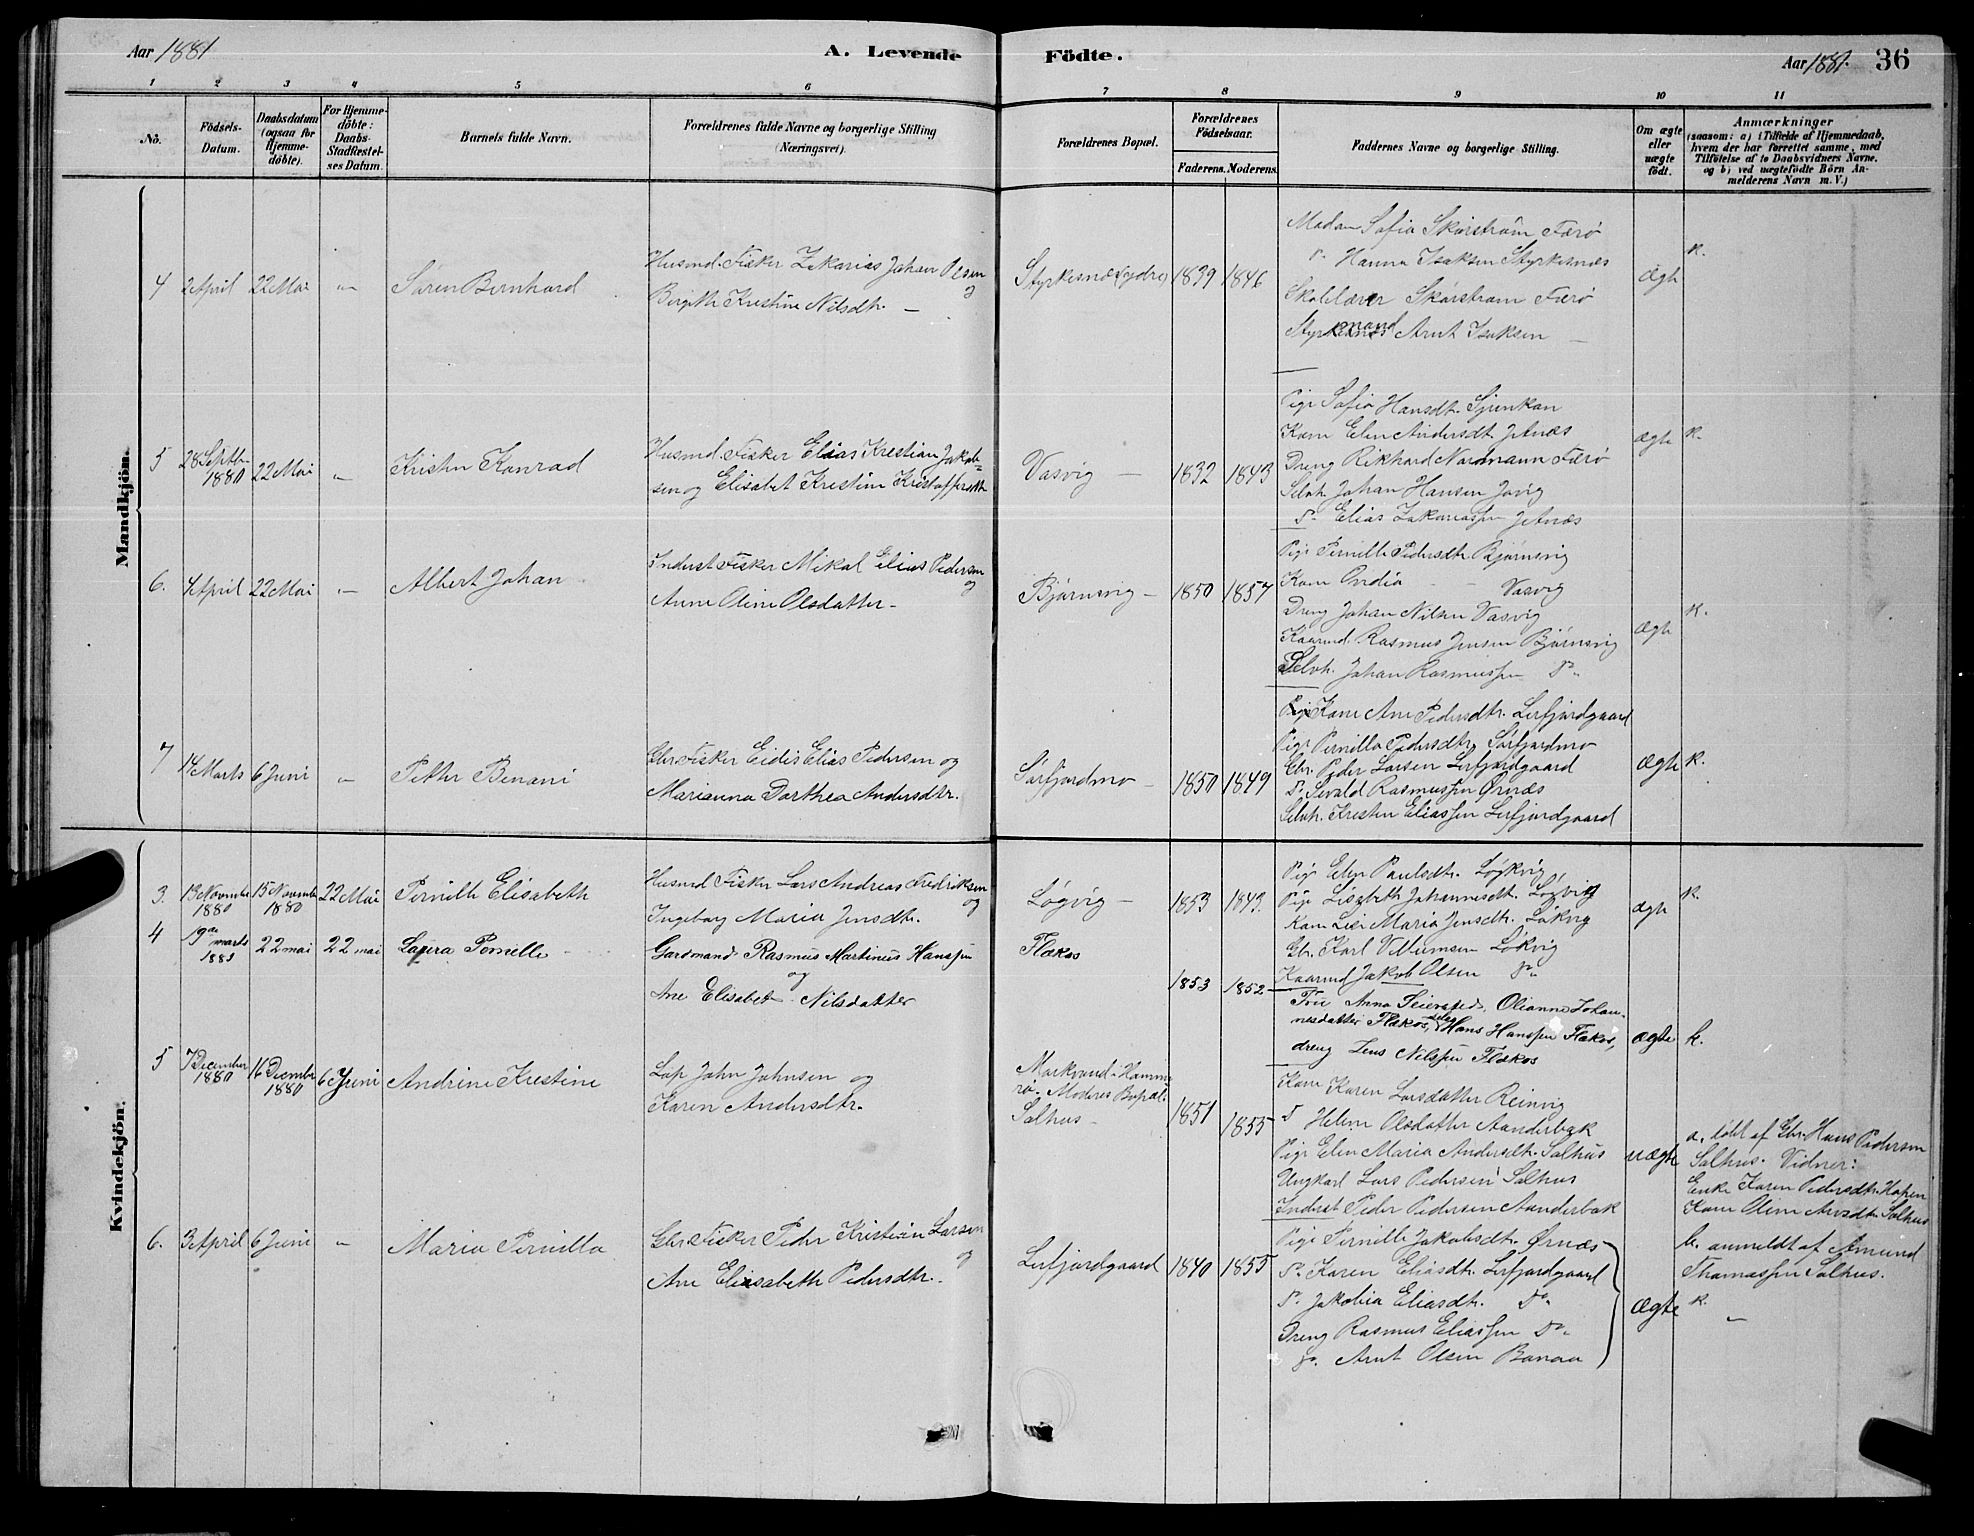 Aar 1881
A. Levende
Födte.
Aar 1881. 36
1 2 3 4 5 6 7 8 9 10 11
No.
Födsels-
Datum.
Daabsdatum
(ogsaa for
Hjemme-
döbte).
For Hjemme-
döbte:
Daabs-
Stadfæstel-
ses Datum.
Barnets fulde Navn.
Forældrenes fulde Navne og borgerlige Stilling
(Næringsvei).
Forældrenes Bopæl.
Forældrenes
Födselsaar.
Faderens. Moderens.
Faddernes Navne og borgerlige Stilling.
Om ægte
eller
uægte
födt.
Anmærkninger
(saasom: a) i Tilfælde af Hjemmedaab,
hvem der har forrettet samme, med
Tilföielse af to Daabsvidners Navne.
og b) ved uægtefödte Börn An-
melderens Navn m. V.)
Mandkjön.
4 2 April 22 Mai " Søren Bernhard
Husmd. Fisker Zakarias Johan Olsen
og
Birgith Kristine Nilsdtr. –
Styrkesnæs (ydre) 1839 1846
Madam Sofia Skarstrøm Færø
do Hanna Isaksen Styrkesnæs
Skolelærer Skarstrøm Færø
Styrmand Arnt Isaksen –
Ægte k.
5 28 Septbr. 1880 22 Mai " Kristen Konrad
Husmd. Fisker Elias Krestian Jakob-
sen og Elisabet Kristine Kristoffersdtr
Vasvig – 1832 1843
Pige Sofia Hansdtr.
Kone Elen Andersdt.
Dreng Rikhard Nordmann Færø
Selvh. Johan Hansen
do Elias Zakariassen
ægte k.
6. 4 April 22 Mai " Albert Johan
Inderst Fisker Mikal Elias Pedersen
og
Anne Oline Olsdatter –
Bjørnsvig – 1850 1857
Pige Pernille Pedersdtr. Bjørnsvig
Kone Ovidia – – Vasvig
Dreng Johan Nilsen Vasvig
Kaarmd. Rasmus Jensen Bjørnsvig
Selvh. Johan Rasmussen do
Ægte k.
7 14 Marts 6 Juni " Petter Benoni
Gbr. Fisker Eidis Elias Pedersen og
Marianna Dorthea Andersdtr.
Sørfjordmo – 1850 1849
Kone Ane Pedersdtr. Lerfjordgaard
Pige Pernilla Pedersdtr. Sørfjordmo
Gbr. Peder Larsen Lerfjordgaard
do Sivald Rasmussen Ørnæs
Selvh. Kresten Eliassen Lerfjordgaard
Ægte k.
Kvindekjön.
3. 13 Novembr 1880 15 Novembr 1880 22 Mai Pernille Elisabeth
Husmd Fisker Lars Andreas Fredriksen
og
Ingeborg Maria Jensdtr.
Løgvig – 1853 1843.
Pige Elen Paulsdtr. Løkvig
Pige Lisbeth Johannesdtr. Løgvig
Kone Lise Maria Jensdtr. Løkvig
Gbr. Karl Villumsen Løkvig
Kaarmd Jakob Olsen do
ægte k.
4 19de marts 1881 22 mai 22 mai Laura Pernelle –
Gardmand Rasmus Martinus Hanssen
og
Ane Elisabet Nilsdatter
Flakos 1853 1852
Frue Anna Seiersted, Olianna Johan-
nesdatter Flakos, Hans Hanssen Flakos,
dreng Jens Nilssen Flakos
ægte k.
5 7 December 1880 16 December 1880 6 Juni Andrine Kristine
Lap John Johnsen og
Karen Andersdtr.
Markvand i Hamm-
rø. Moderes Bopæl.
Salhus – 1851 1855
Kone Karen Larsdatter Reinvig
do Helene Olsdatter Aanderbak
Pige Elen Maria Andersdtr. Salhus
Ungkarl Lars Pedersen Salhus
Inderst Peder Pedersen Aanderbak
uægte
a. döbt af Gbr. Hans Pedersen
Salhus. Vidner:
Enke Karen Pedersdtr. Hopen
Kone Oline Arnsdtr. Salhus
b. anmeldt af Amund
Thomassen Salhus.
6. 3 April 6 Juni " Maria Pernilla
Gbr. Fisker Peder Kristian Larsen
og
Ane Elisabeth Pedersdtr.
Lerfjordgaard 1840 1855
Pige Pernille Jakobsdtr. Ørnæs
do Karen Eliasdtr. Lerfjordgaard
do Jakobia Eliasdtr. do
Dreng Rasmus Eliassen do
do Arnt Olsen Bonaa
Ægte k.